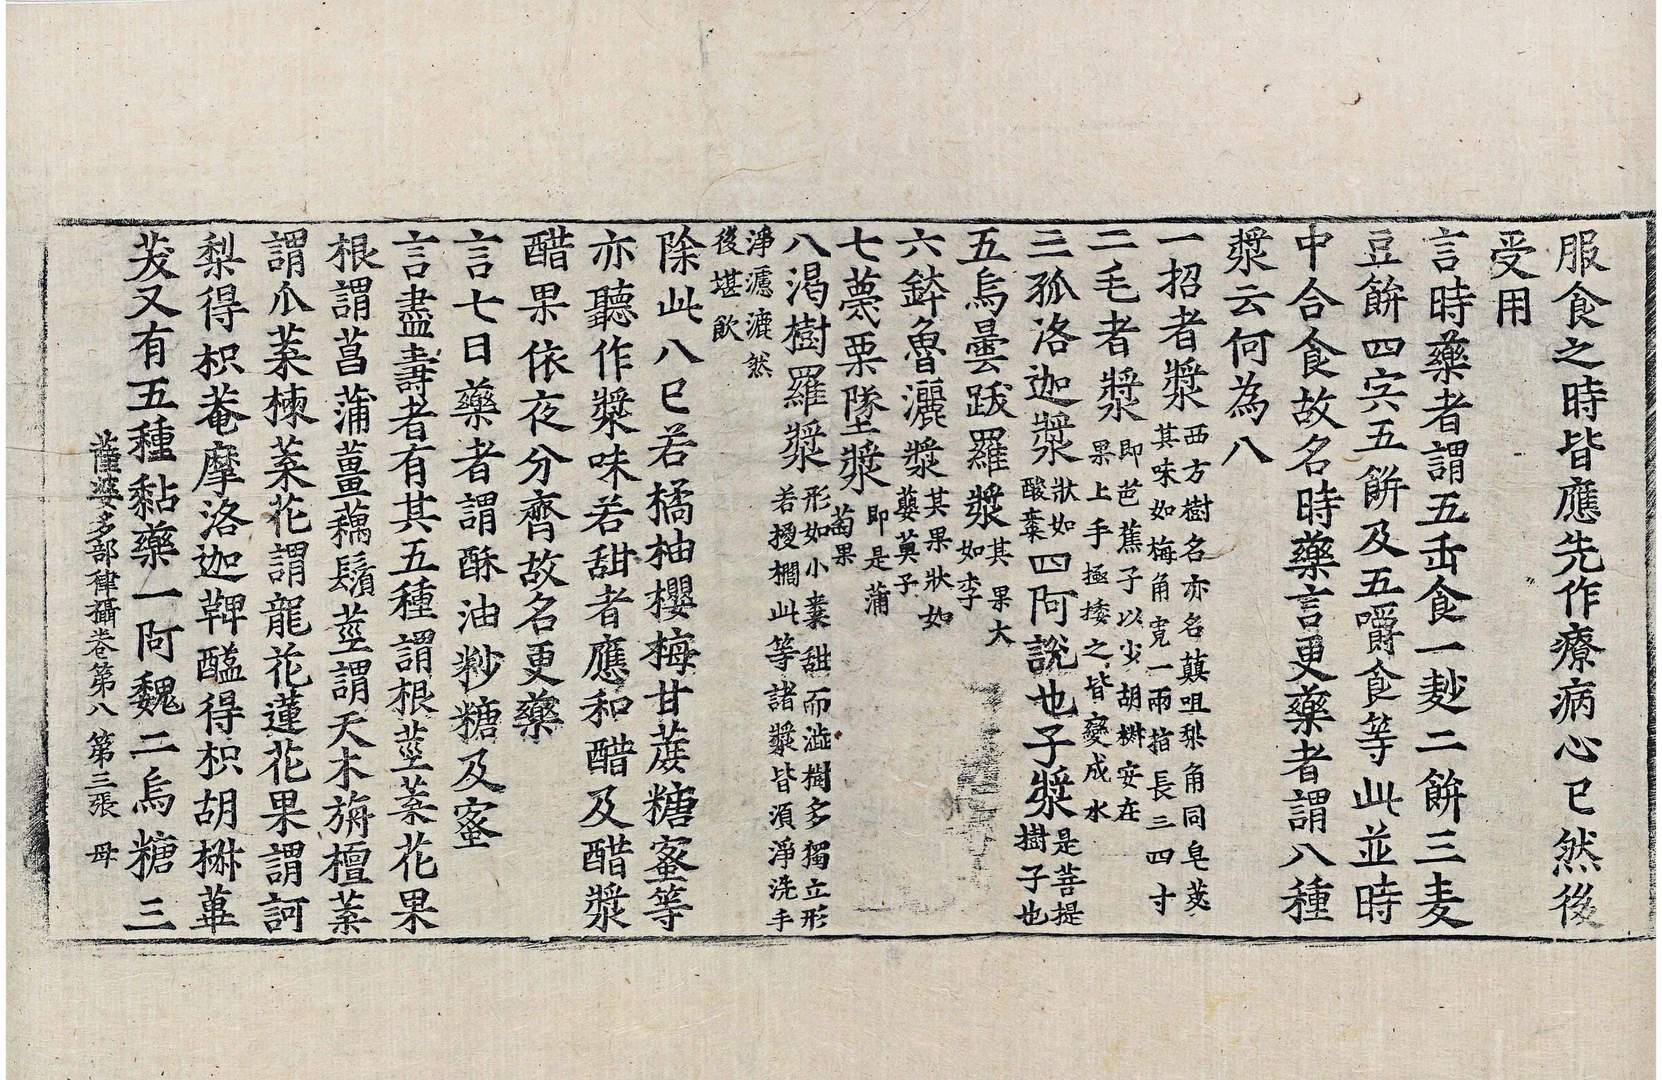 服食之時皆應先作療病心已然後
受用
言時藥者謂五正食一麨二餅三麦
豆餅四宍五餅及五嚼食等此並時
中合食故名時藥言更藥者謂八種
漿云何為八
一招者漿西方樹名亦名顛咀梨角同皂莢
其味如梅角寛一兩指長三四寸
二毛者漿即芭蕉子以少胡椒安在
果上手極捼之皆變成水
三孤洛迦漿狀如
酸棗四阿說也子漿是菩提
樹子也
五烏曇跋羅漿其果大
如李
六鉢魯灑漿其果狀如
蘡薁子
七蔑栗墜漿即是蒲
萄果
八渴樹羅漿形如小棗甜而澁樹多獨立形
若椶櫚此等諸漿皆須淨洗手
淨濾漉然
後堪飲
除此八已若橘柚櫻梅甘蔗糖蜜等
亦聽作漿味若甜者應和醋及醋漿
醋果依夜分齊故名更藥
言七日藥者謂酥油糖及蜜
言盡壽者有其五種謂根莖葉花果
根謂菖蒲薑藕鬚莖謂天木旃檀葉
謂瓜葉楝葉花謂龍花蓮花果謂訶
梨得枳菴摩洛迦鞞醯得枳胡椒蓽
茇又有五種黏藥一阿魏二烏糖三
薩婆多部律攝卷第八 第三張 母